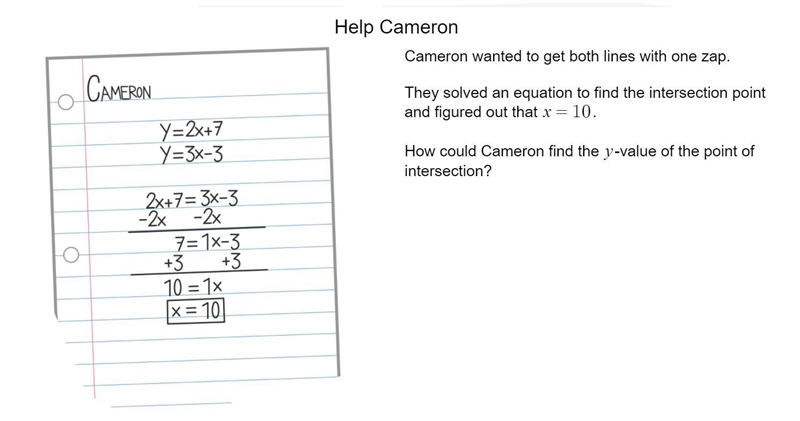 Help Cameron
CAMERON
Y=2x+7
Y=3x-3
2x+7=3x-3
-2x -2x
7=1x-3
+3 +3
10=1x
x=10
Cameron wanted to get both lines with one zap.
They solved an equation to find the intersection point
and figured out that x = 10.
How could Cameron find the y-value of the point of
intersection?